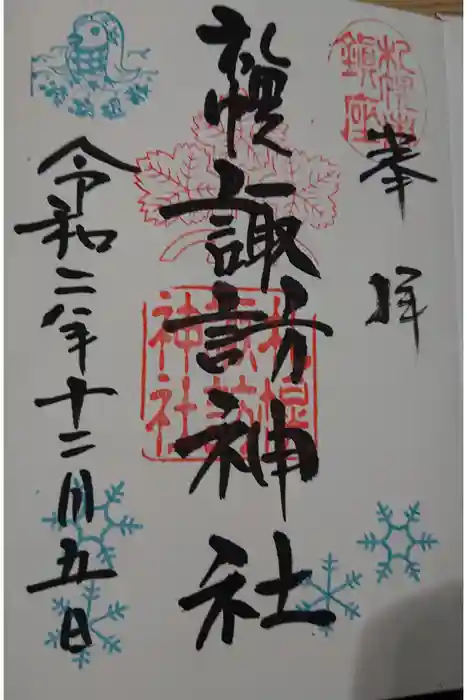 奉拝
札幌市鎮座
札幌諏訪神社
札幌諏訪神社
令和二年十二月五日